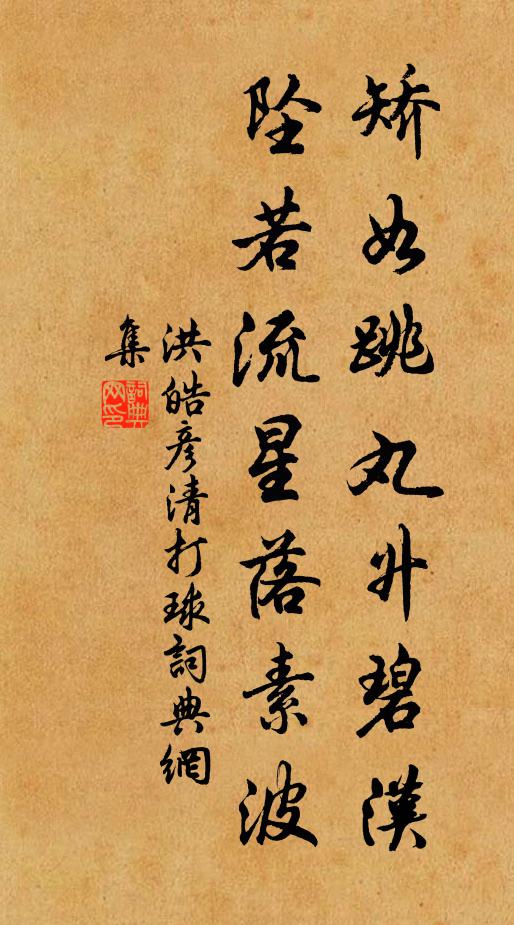 矯如跳丸升碧漢
墜若流星落素波
洪皓彥清打球詞典網
集
詞典網印